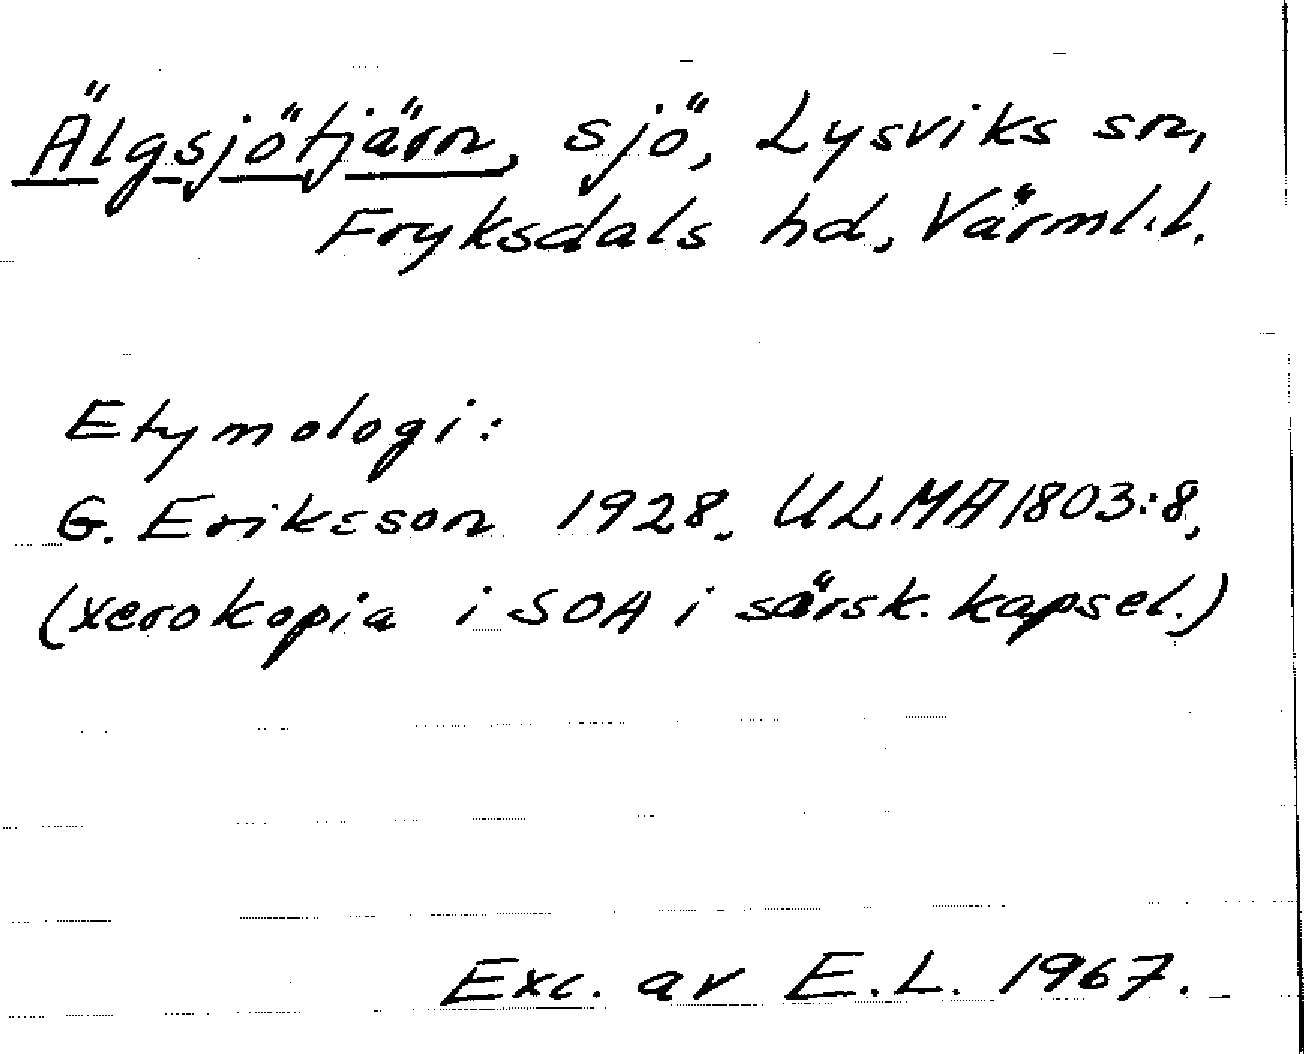 Älgsjötjärn, sjö, Lysviks sn,
Fryksdals hd, Värml.l.
Etymologi:
G. Eriksson 1928. ULMA 1803:8,
(xerokopia i SOA i särsk. kapsel.)
Exc. av E.L. 1967.